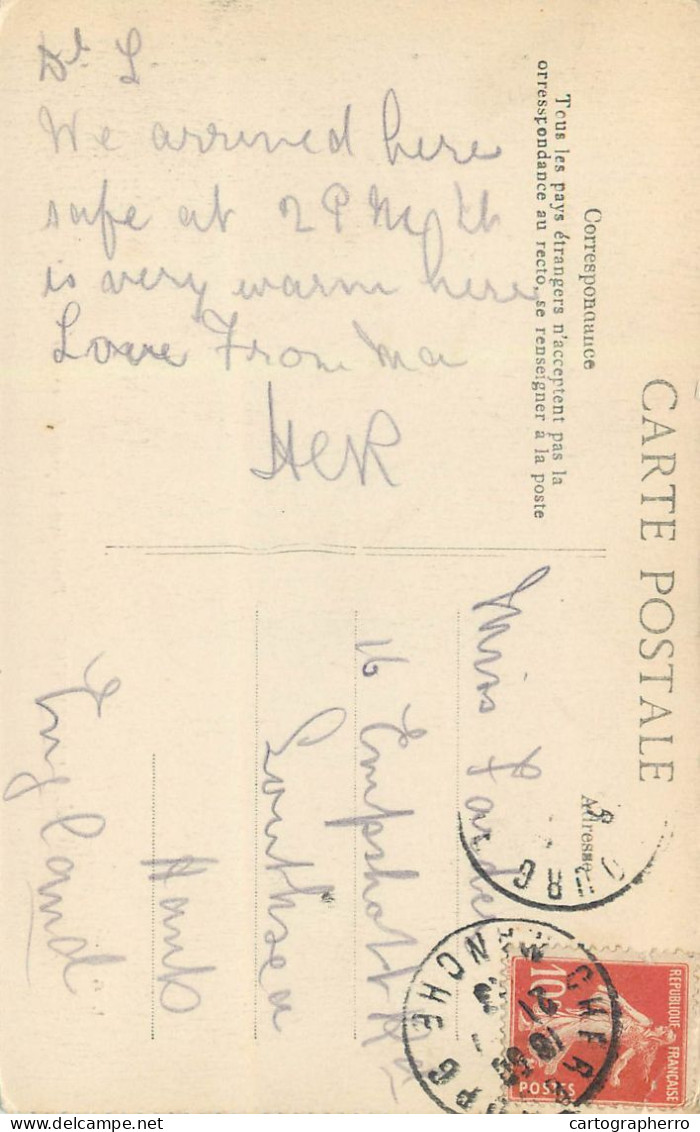 CARTE POSTALE
Correspondance
Tous les pays étrangers n'acceptent pas la
orrespondance au recto, se renseigner à la poste
Adresse
We arrived here
safe at 2 P
is very warm here
Love From Ma
Miss
16 Empshott Rd
Southsea
Hants
England
REPUBLIQUE FRANÇAISE
10c
POSTES
CHERB URG
MANCHE
18 55
27
cartographerro